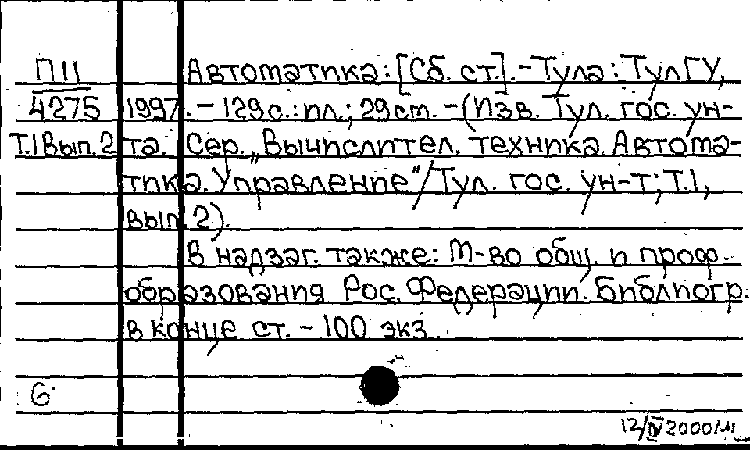 П11 Автоматика: [Сб. ст.]. - Тула: ТулГУ,
4275 1997. - 129с.: ил.; 29см. - (Изв. Тул. гос. ун-
Т.1 Вып. 2 та. Сер. „Вычислител. техника. Автома-
тика. Управление"/Тул. гос. ун-т; Т.1,
вып. 2).
В надзаг. также: М-во общ. и проф.
образования Рос. Федерации. Библиогр.
в конце ст. - 100 экз.
6
12/IV 2000